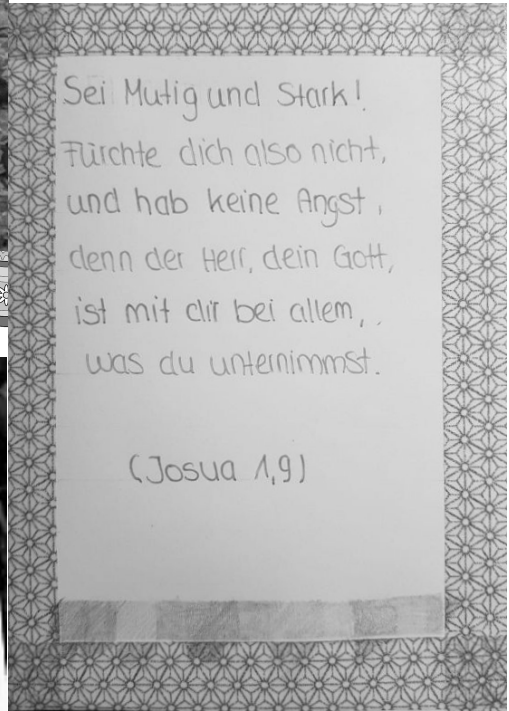 Sei Mutig und Stark!
Fürchte dich also nicht,
und hab keine Angst,
denn der Herr, dein Gott,
ist mit dir bei allem,
was du unternimmst.
(Josua 1,9)